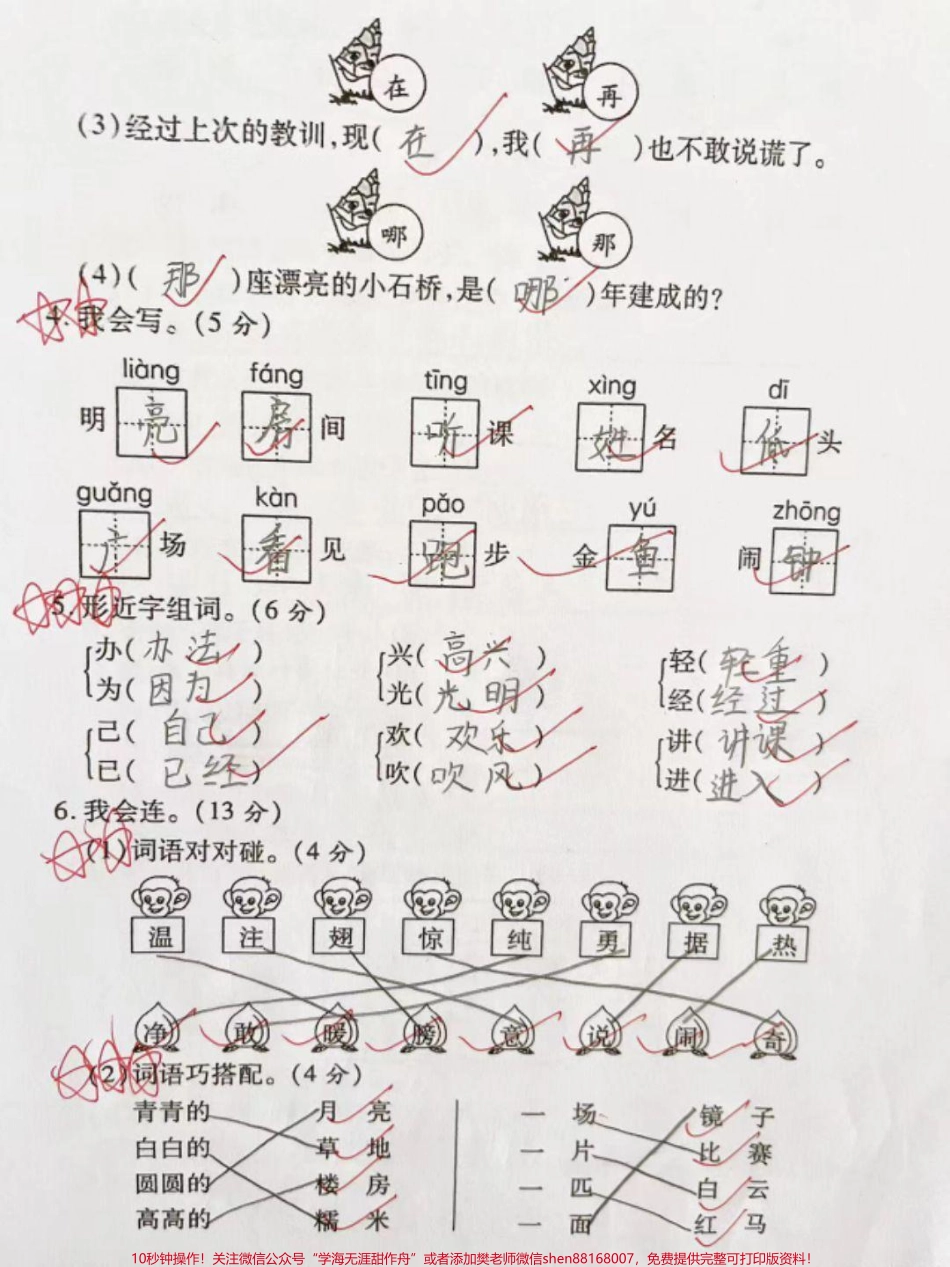 在 再
(3)经过上次的教训,现( 在 ),我( 再 )也不敢说谎了。
哪 那
(4)( 那 )座漂亮的小石桥,是( 哪 )年建成的?
4. 我会写。(5 分)
liàng fáng tīng xìng dī
明 亮 房 间 听 课 姓 名 低 头
guǎng kàn pǎo yú zhōng
广 场 看 见 跑 步 金 鱼 闹 钟
5. 形近字组词。(6 分)
办( 办法 ) 兴( 高兴 ) 轻( 轻重 )
为( 因为 ) 光( 光明 ) 经( 经过 )
己( 自己 ) 欢( 欢乐 ) 讲( 讲课 )
已( 已经 ) 吹( 吹风 ) 进( 进入 )
6. 我会连。(13 分)
(1)词语对对碰。(4 分)
温 注 翅 惊 纯 勇 据 热
净 敢 暖 膀 意 说 闹 奇
(2)词语巧搭配。(4 分)
青青的 月 亮 一 场 镜 子
白白的 草 地 一 片 比 赛
圆圆的 楼 房 一 匹 白 云
高高的 糯 米 一 面 红 马
10秒钟操作！关注微信公众号“学海无涯甜作舟”或者添加樊老师微信shen88168007，免费提供完整可打印版资料！